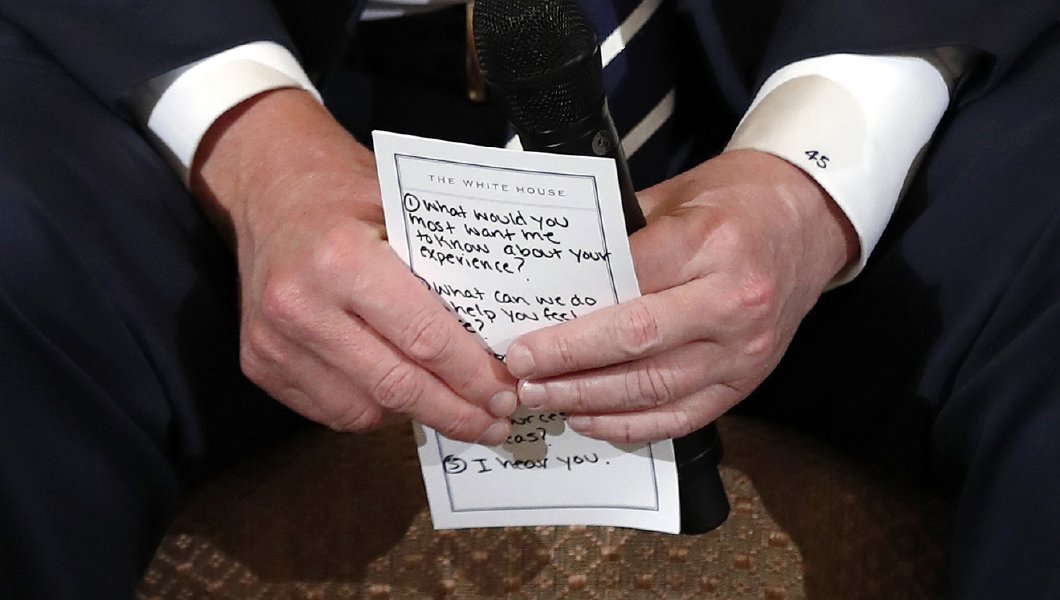 THE WHITE HOUSE
① What would you
most want me
to know about your
experience?
What can we do
help you feel
urces
eas?
⑤ I hear you.
45